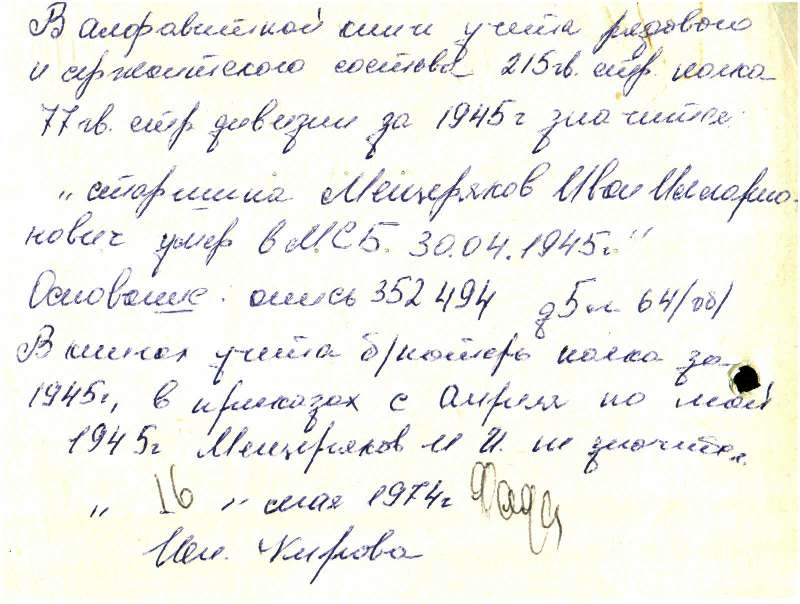 В алфавитной книги учета рядового
и сержантского состава 215 гв. стр. полка
77 гв. стр дивизии за 1945 г значится:
„старшина Мещеряков Иван Илларио-
нович умер в МСБ. 30.04.1945г."
Основание: опись 352494 д5 л 64/об/
В книгах учета б/потерь полка за
1945г, в приказах с апреля по май
1945г Мещеряков И И. не значится.
„16" мая 1974г
Исп. Кирова